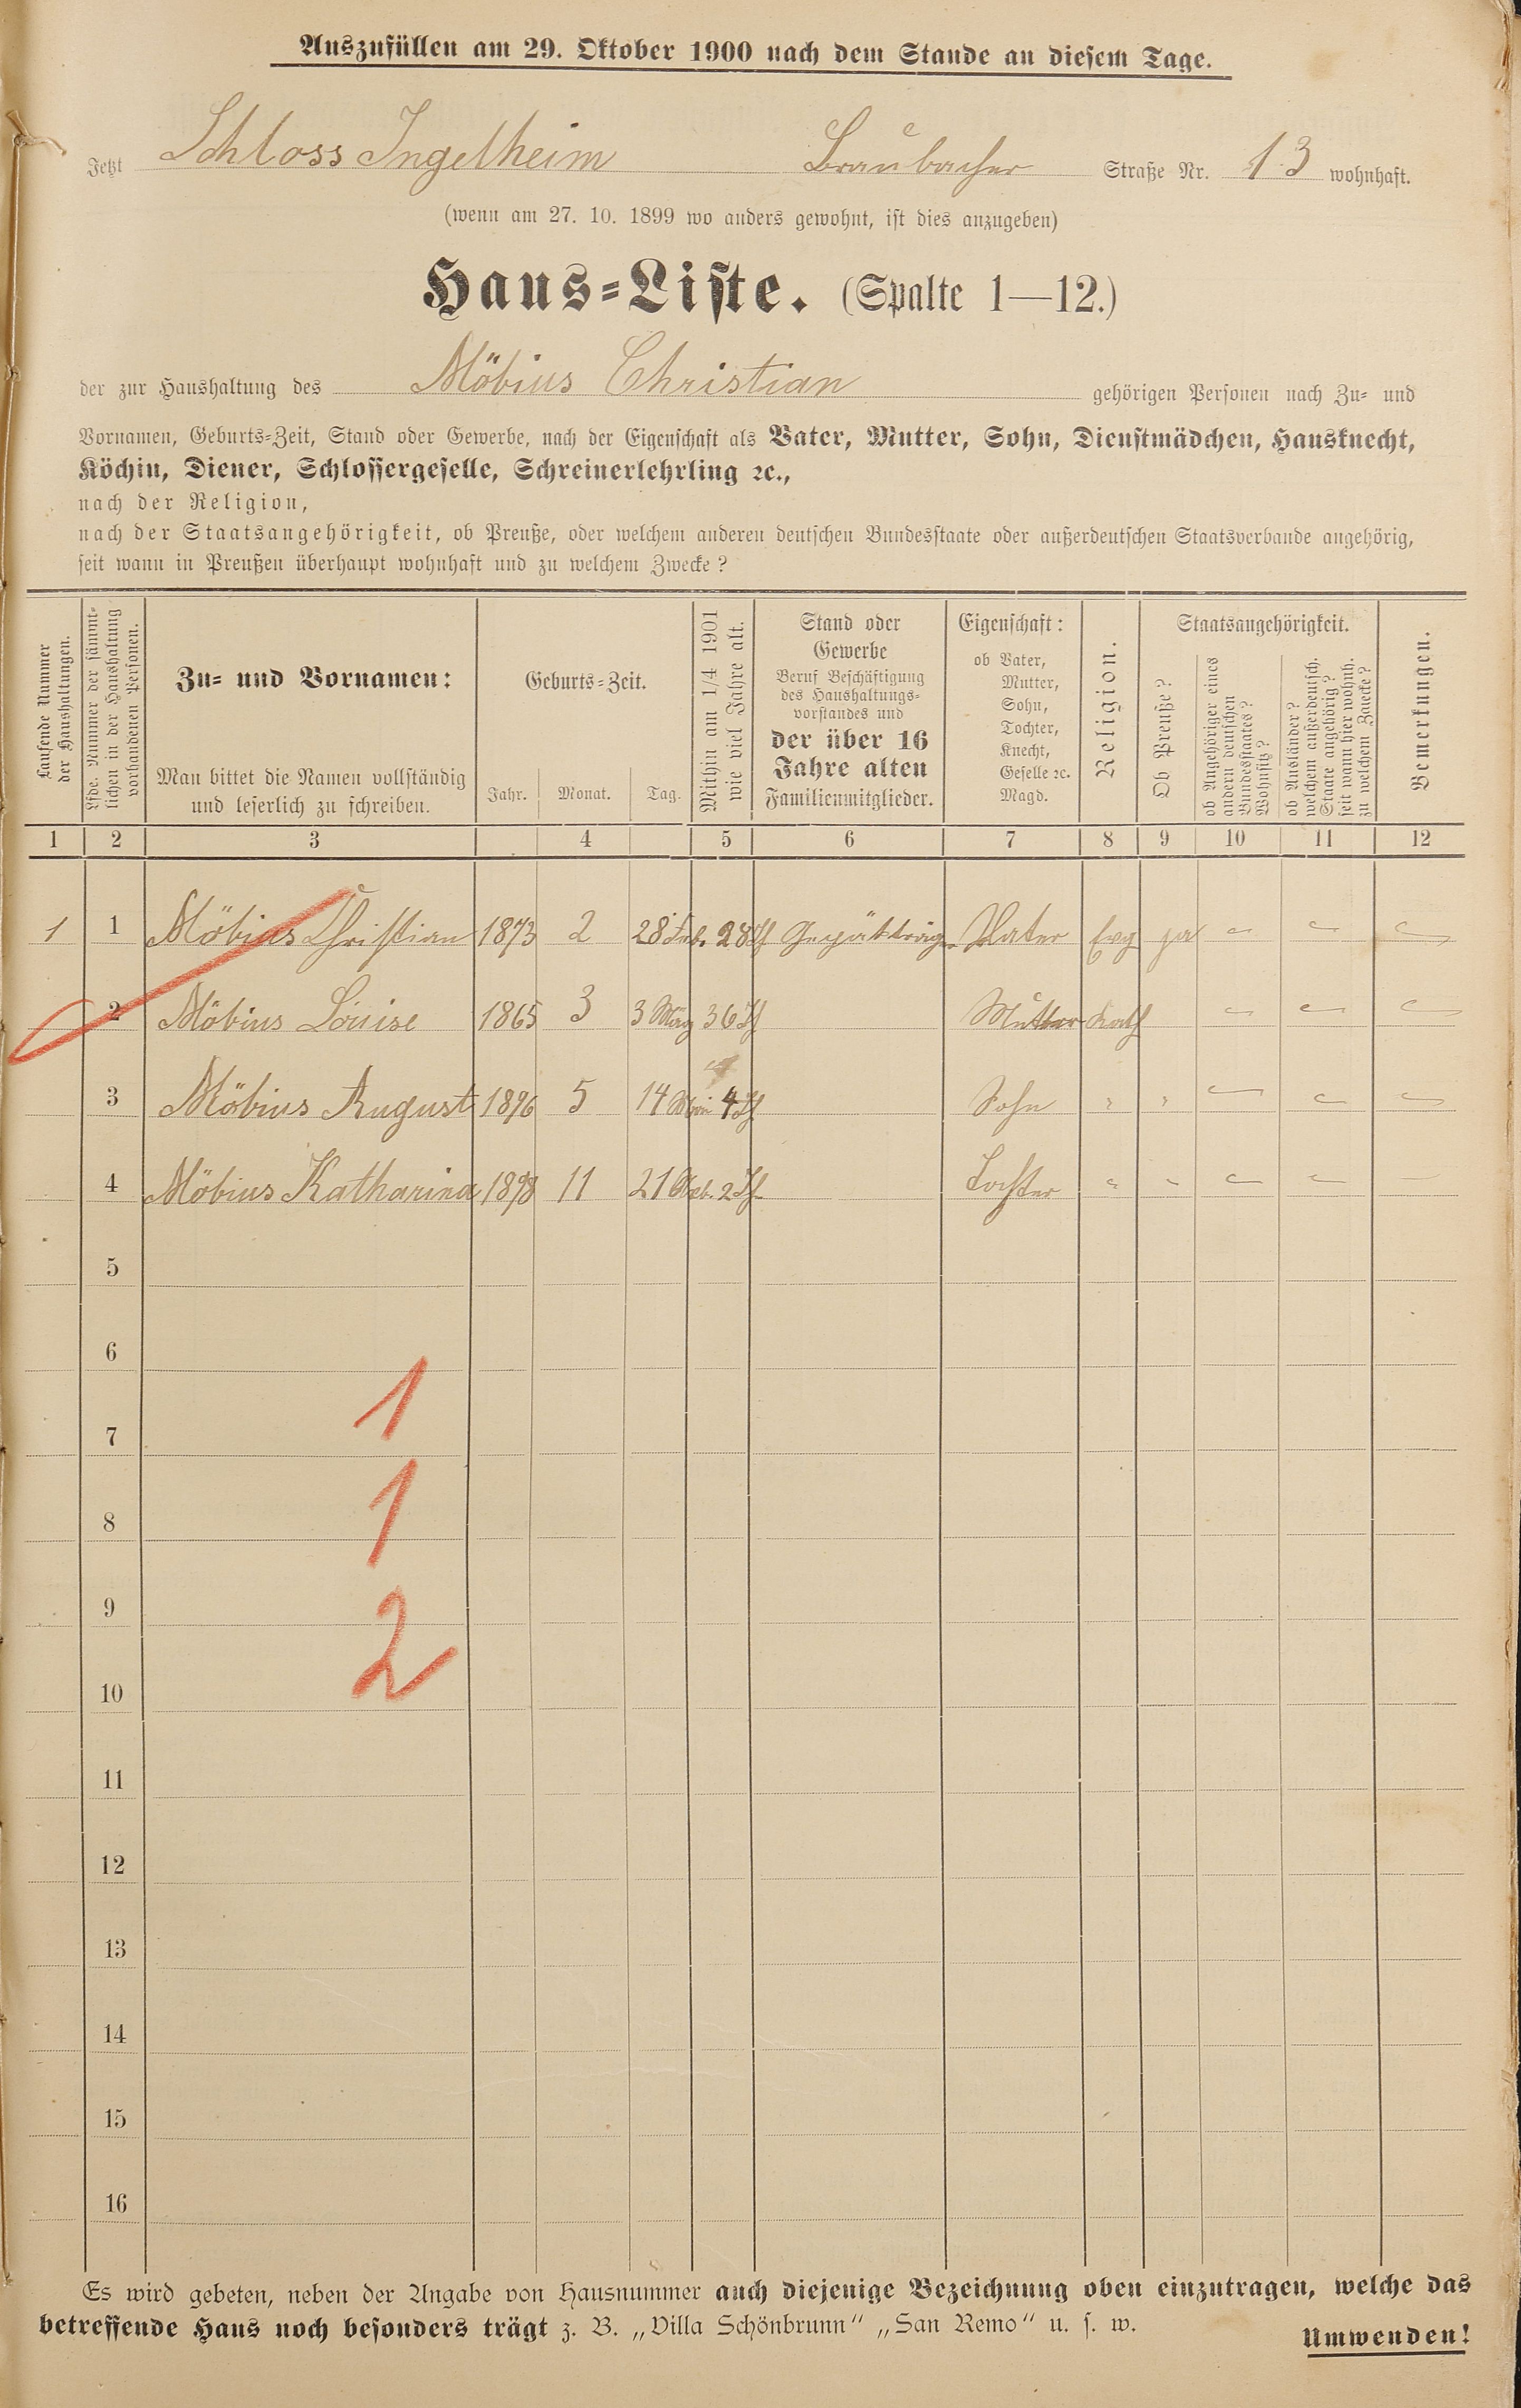 Auszufüllen am 29. Oktober 1900 nach dem Stande an diesem Tage.
Jetzt Schloss Ingelheim Braubacher Straße Nr. 13 wohnhaft.
(wenn am 27. 10. 1899 wo anders gewohnt, ist dies anzugeben)
Haus-Liste. (Spalte 1—12.)
der zur Haushaltung des Möbius Christian gehörigen Personen nach Zu- und
Vornamen, Geburts-Zeit, Stand oder Gewerbe, nach der Eigenschaft als Vater, Mutter, Sohn, Dienstmädchen, Hausknecht,
Köchin, Diener, Schlossergeselle, Schreinerlehrling ꝛc.,
nach der Religion,
nach der Staatsangehörigkeit, ob Preuße, oder welchem anderen deutschen Bundesstaate oder außerdeutschen Staatsverbande angehörig,
seit wann in Preußen überhaupt wohnhaft und zu welchem Zwecke?
Laufende Nummer
der Haushaltungen.
Lfde. Nummer der sämmt-
lichen in der Haushaltung
vorhandenen Personen.
Zu- und Vornamen:
Man bittet die Namen vollständig
und leserlich zu schreiben.
Geburts-Zeit.
Jahr. Monat. Tag.
Mithin am 1/4 1901
wie viel Jahre alt.
Stand oder
Gewerbe
Beruf Beschäftigung
des Haushaltungs-
vorstandes und
der über 16
Jahre alten
Familienmitglieder.
Eigenschaft:
ob Vater,
Mutter,
Sohn,
Tochter,
Knecht,
Geselle ꝛc.
Magd.
Religion.
Staatsangehörigkeit.
Ob Preuße?
ob Angehöriger eines
andern deutschen
Bundesstaates?
Wohnsitz?
ob Ausländer?
welchem außerdeutsch.
Staate angehörig?
seit wann hier wohnh.
zu welchem Zwecke?
Bemerkungen.
1 2 3 4 5 6 7 8 9 10 11 12
1 1 Möbius Christian 1873 2 28 Feb. 28 J Gepäkträger Vater Evg ja
2 Möbius Louise 1865 3 3 März 36 J Mutter Kath
3 Möbius August 1896 5 14 Mai 4 J Sohn " "
4 Möbius Katharina 1898 11 21 2 J Tochter " "
5
6
1
7
1
8
9
2
10
11
12
13
14
15
16
Es wird gebeten, neben der Angabe von Hausnummer auch diejenige Bezeichnung oben einzutragen, welche das
betreffende Haus noch besonders trägt z. B. „Villa Schönbrunn“ „San Remo“ u. s. w.
Umwenden!